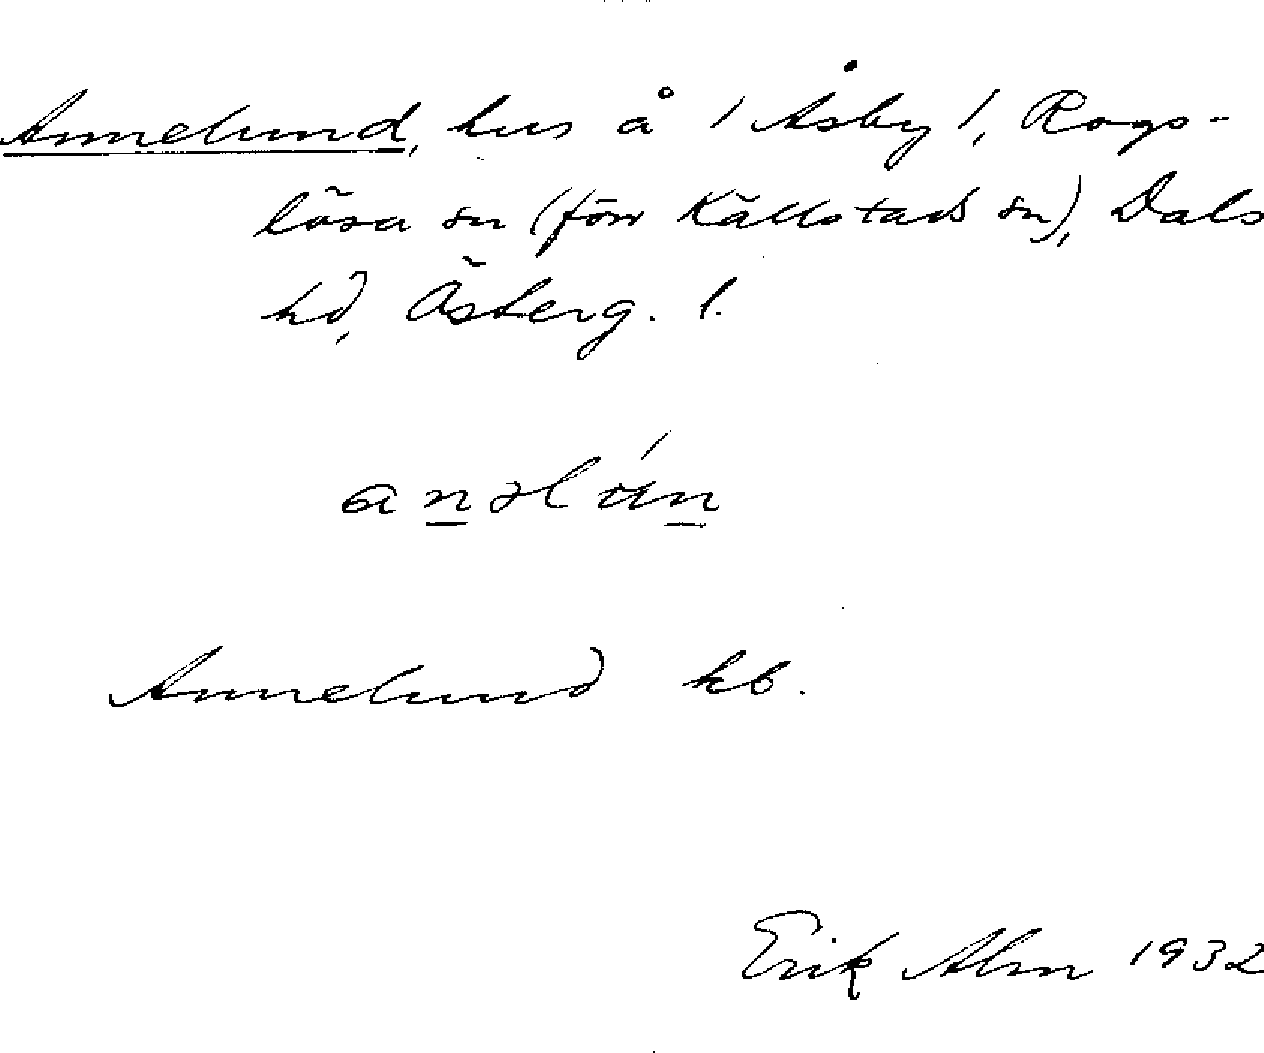 Annelund, hus å /Åsby/, Rogs-
lösa sn (förr Källstads sn), Dals
hd, Österg. l.
an̲əlún̲
Annelund kb.
Erik Alm 1932